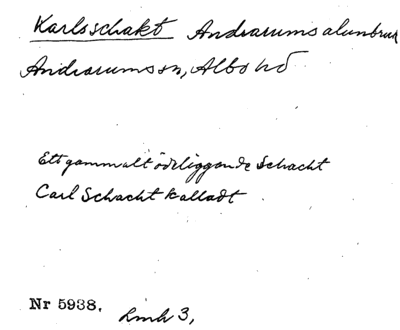 Karlsschakt Andrarums alunbruk
Andrarums sn, Albo hd
Ett gammalt ödeliggande Schacht
Carl Schacht kalladt
Nr 5938. Lmh 3,